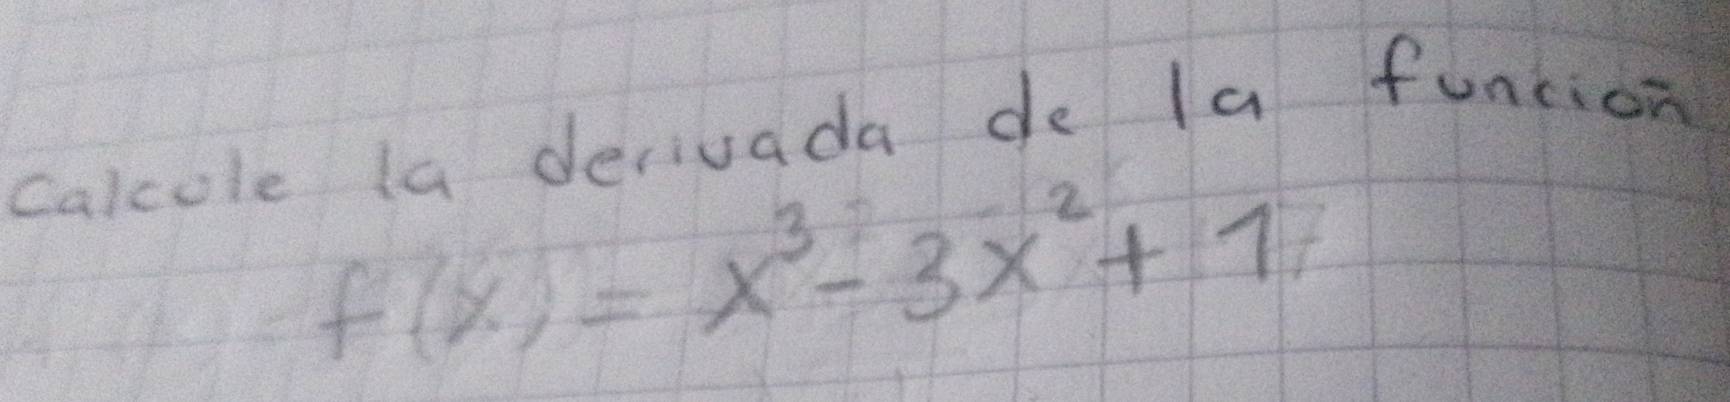 calcule la derivada de la función
f(x) = x³ - 3x² + 1